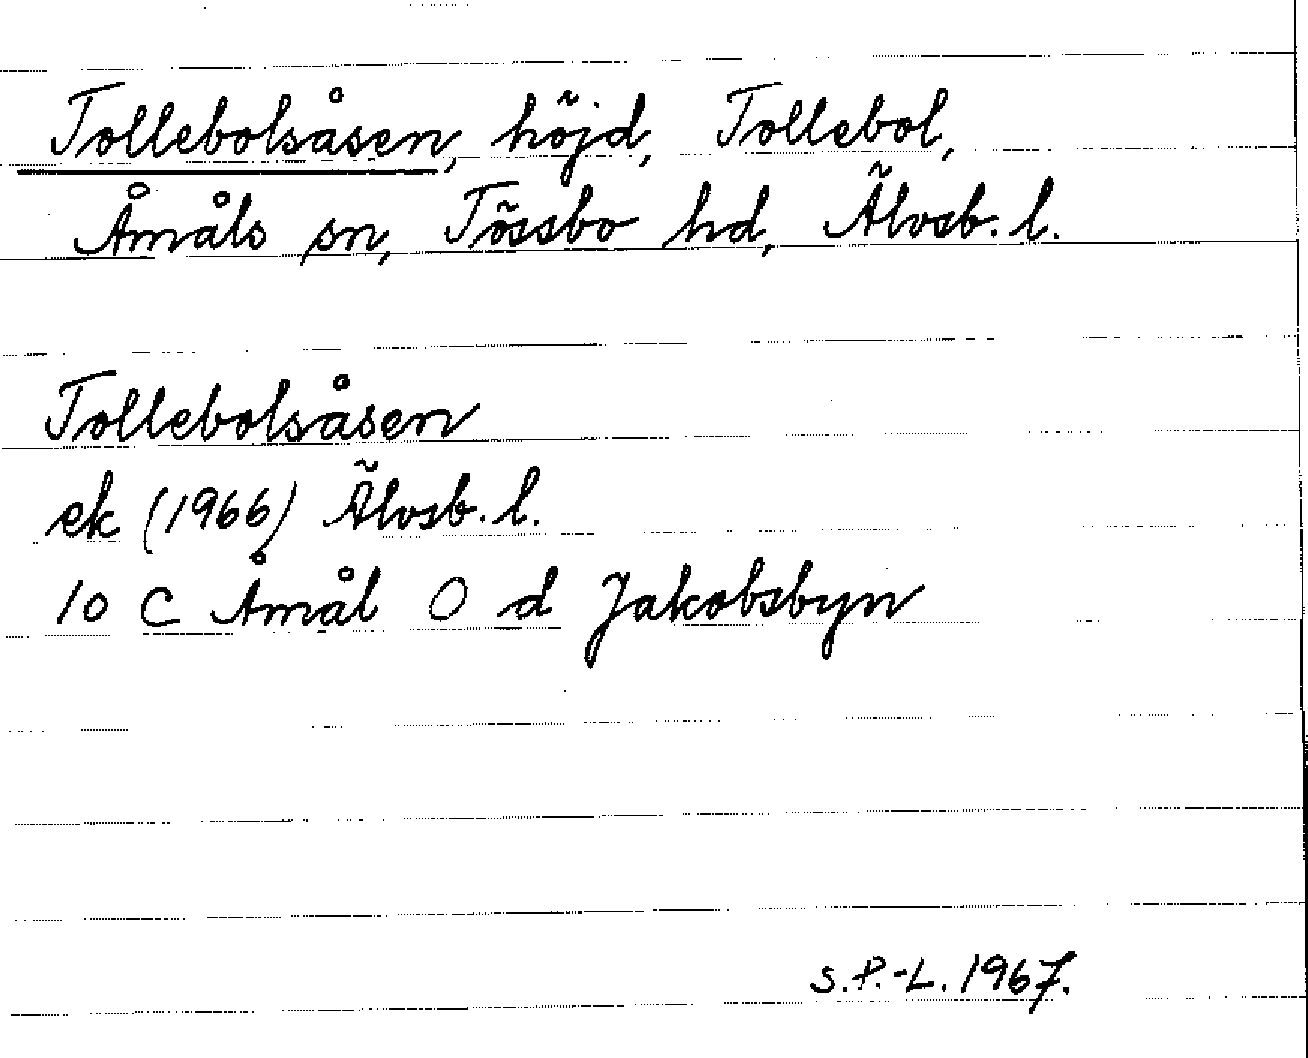 Tollebolsåsen, höjd, Tollebol,
Åmåls sn, Tössbo hd, Älvsb. l.
Tollebolsåsen
ek (1966) Älvsb. l.
10 C Åmål O d Jakobsbyn
S.P.-L. 1967.